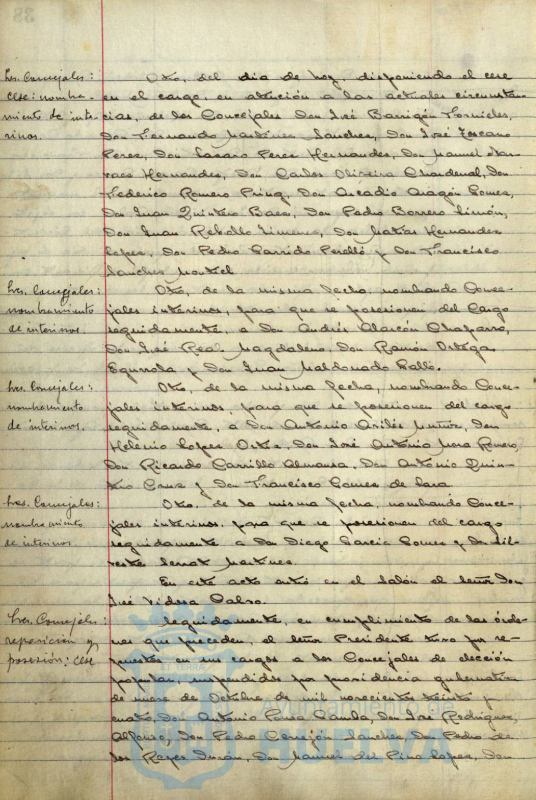 38
Sres. Concejales:
cese: nombra-
miento de inte-
rinos.
Otro, del dia de hoy, disponiendo el cese
en el cargo, en atención a las actuales circunstan-
cias, de los Concejales Don José Barrigón Fornieles,
Don Fernando Martinez Sanchez, Don José Toscano
Perez, Don Lazaro Perez Hernandez, Don Manuel Nar-
vaez Hernandez, Don Carlos Oliveira Chardenal, Don
Federico Romero Prinz, Don Arcadio Aragón Gomez,
Don Juan Quintero Baez, Don Pedro Borrero Limón,
Don Juan Rebollo Jimenez, Don Matias Hernandez
Lopez, Don Pedro Garrido Perelló y Don Francisco
Sanchez Montiel
Sres. Concejales:
nombramiento
de interinos.
Otro, de la misma fecha, nombrando Conce-
jales interinos, para que se posesionen del Cargo
seguidamente, a Don Andrés Alarcón Chaparro,
Don José Real Magdaleno, Don Ramón Ortega
Egurrola y Don Juan Maldonado Gallo.
Sres. Concejales:
nombramiento
de interinos.
Otro, de la misma fecha, nombrando Conce-
jales interinos, para que se posesionen del cargo
seguidamente, a Don Antonio Aviles Muñoz, Don
Lopez Ortiz, Don José Antonio Mora Romero,
Don Ricardo Carrillo Almansa, Don Antonio Quin-
tero Cruz y Don Francisco Gomez de Lara
Sres. Concejales:
nombramiento
de interinos
Otro, de la misma fecha, nombrando Conce-
jales interinos, para que se posesionen del cargo
seguidamente a Don Diego Garcia Gomez y Don Sil-
vestre Serrat Martinez.
En este acto entró en el salón el señor Don
José Vidosa Calvo.
Sres. Concejales:
reposición y
posesión: cese
Seguidamente, en cumplimiento de las órde-
nes que preceden, el señor Presidente tuvo por re-
puestos en sus cargos a los Concejales de elección
popular, suspendidos por providencia gubernativa
de nueve de Octubre de mil novecientos treinta y
cuatro, Don Antonio Ponce Don José Rodriguez
Alfonso, Don Pedro Cerrejón Sanchez, Don Pedro de
los Reyes Durán, Don Manuel del Pino Lopez, Don
Ayuntamiento de
HUELVA